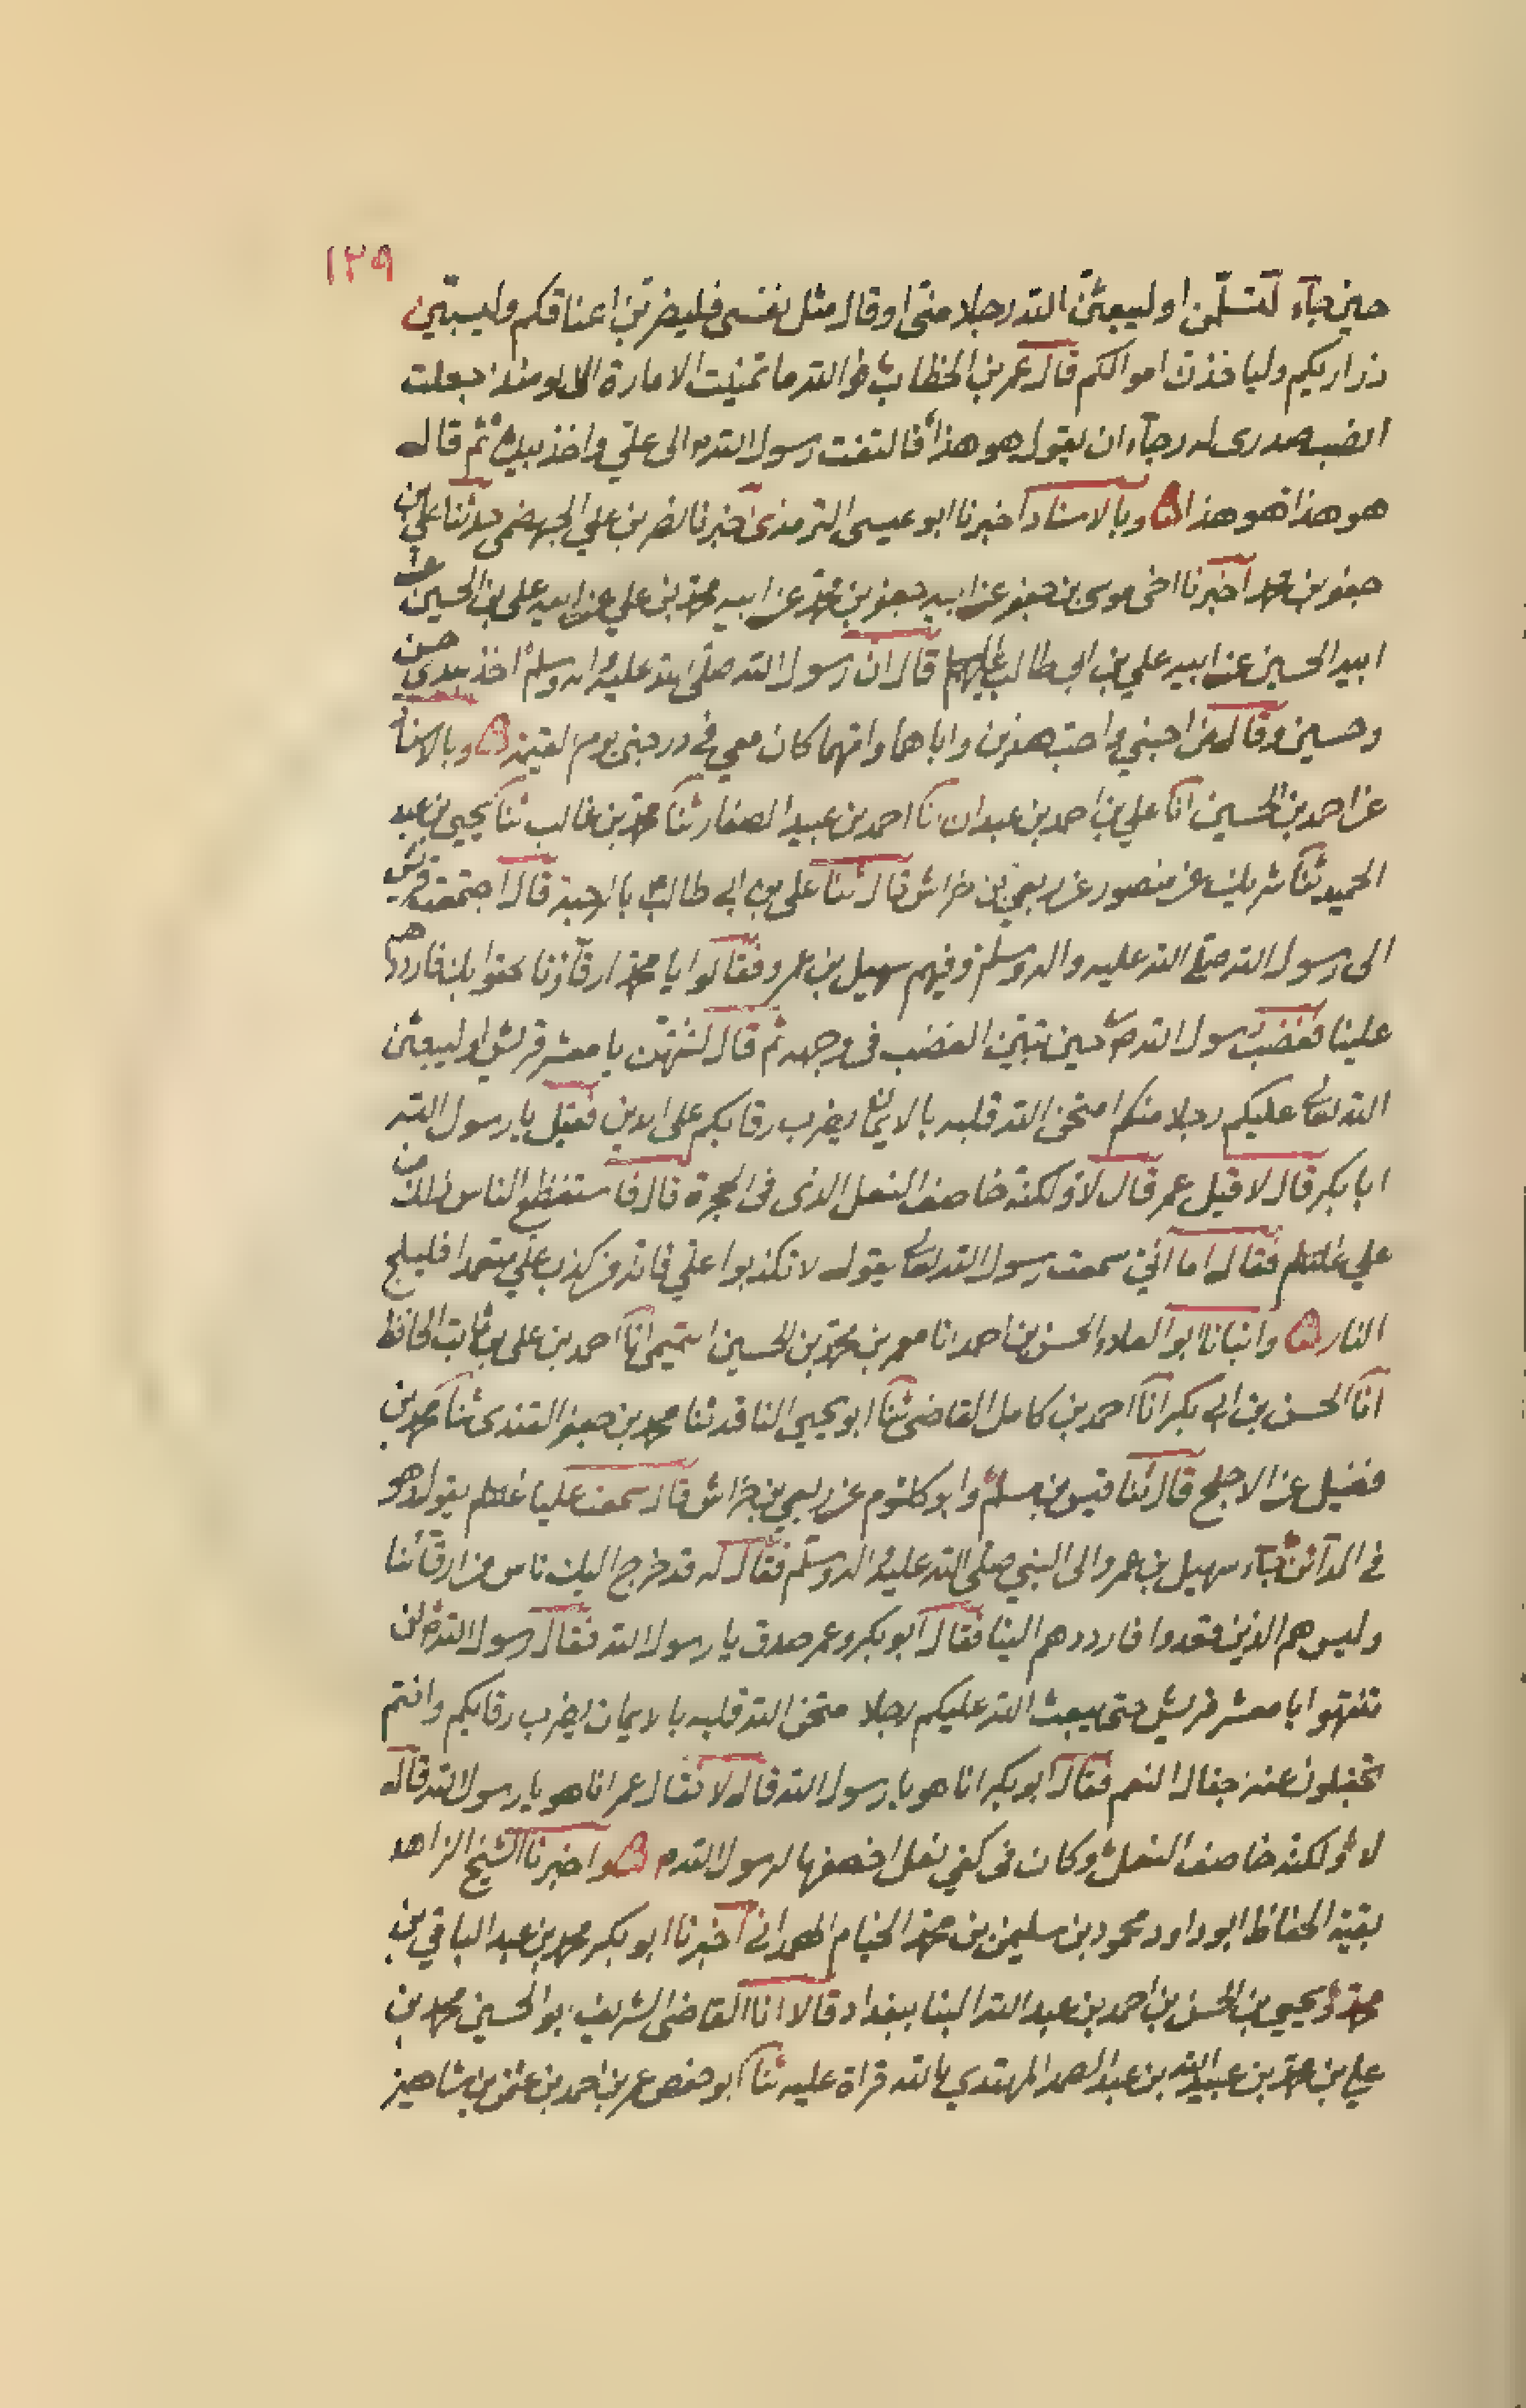 ١٢٩
حين جآء لتسلمن او ليبعثن الله رجلا منى او قال مثل نفسى فليضربن اعناقكم وليسبين
ذراريكم ولياخذن اموالكم قال عمر بن الخطاب فو الله ما تمنيت الامارة الا يومئذ جعلت
انصب صدرى له رجآء ان يقول هو هذا فالتفت رسول الله الى علي واخذ بيده ثم قال
هو هذا هو هذا ۵ وبالاسناد اخبرنا ابو عيسى الترمذى اخبرنا نصر بن علي الجهضمى حدثنا علي بن
جعفر بن محمد اخبرنا اخى موسى بن جعفر عن ابيه جعفر بن محمد عن ابيه محمد بن علي عن ابيه على بن الحسين عن
ابيه الحسين عن ابيه علي بن ابى طالب عليهم قال ان رسول الله صلى الله عليه واله وسلم اخذ بيدى حسن
وحسين وقال من احبني واحب هذين واباهما وامهما كان معي في درجتى يوم القيمة ۵ وبالاسناد
عن احمد بن الحسين انا علي بن احمد بن عبدان انا احمد بن عبيد الصفار ثنا محمد بن غالب ثنا يحيى بن عبد
الحميد ثنا شريك عن منصور عن ربعي بن خراش قال ثنا على بن ابى طالب بالرحبة قال اجتمعت قريش
الى رسول الله صلى الله عليه واله وسلم وفيهم سهيل بن عمرو فقالوا يا محمد ارقآؤنا لحقوا بك فارددهم
علينا فغضب رسول الله ص حين تبين الغضب فى وجهه ثم قال لتنتهن يا معشر قريش او ليبعثن
الله تعالى عليكم رجلا منكم امتحن الله قلبه بالايمان يضرب رقابكم على الدين فقيل يا رسول الله
ابا بكر قال لا قيل عمر قال لا ولكنه خاصف النعل الذى فى الحجرة قال فاستفظع الناس ذلك من
علي فقال اما انى سمعت رسول الله تعالى يقول لا تكذبوا علي فانه من كذب علي متعمدا فليلج
النار ۵ وانبانا ابو العلاء الحسن بن احمد انا معمر بن محمد بن الحسين التميمى انا احمد بن على بن ثابت الحافظ
انا الحسن بن ابى بكر انا احمد بن كامل القاضى ثنا ابو يحيى الناقد ثنا محمد بن جعفر الفندى ثنا محمد بن
فضيل عن الاجلح قال ثنا قيس بن مسلم وابو كلثوم عن ربعي بن خراش قال سمعت عليا يقول وهو
في المدآئن جآء سهيل بن عمرو الى النبي صلى الله عليه واله وسلم فقال له قد خرج اليك ناس من ارقآئنا
وليس هم الدين فارددهم الينا فقال ابو بكر وعمر صدق يا رسول الله فقال رسول الله ص لن
تنتهوا يا معشر قريش حتى يبعث الله عليكم رجلا متحن الله قلبه بالايمان يضرب رقابكم وانتم
تجفلون عنه جفال النعم فقال ابو بكر انا هو يا رسول الله قال لا فقال عمر انا هو يا رسول الله قال
لا ولكنه خاصف النعل وكان فى كفي نعل اخصفها لرسول الله م ۵ واخبرنا الشيخ الزاهد
بقية الحفاظ ابو داود محمود بن سليمن بن محمد الخيام الهمدانى اخبرنا ابو بكر محمد بن عبد الباقي بن
محمد ويحيى بن الحسن بن احمد بن عبد الله البنا ببغداد قالا انا القاضى الشريف ابو الحسين محمد بن
علي بن محمد بن عبيد الله بن عبد الصمد المهتدي بالله قراة عليه ثنا ابو حفص عمر بن احمد بن عثمن بن شاهين